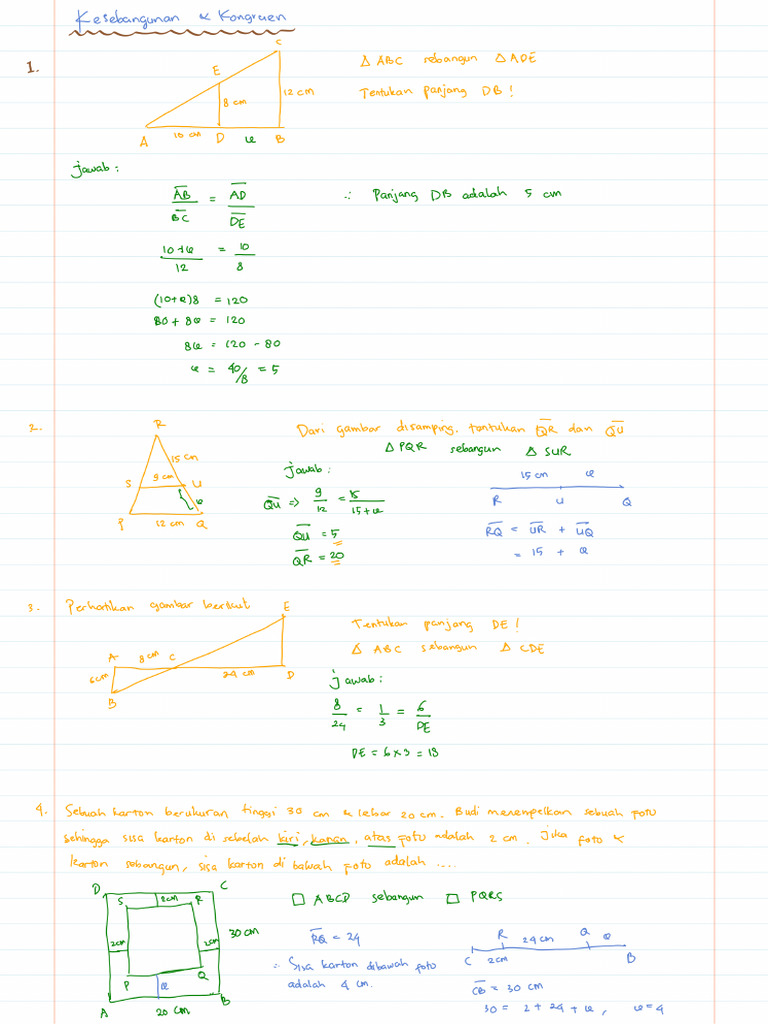 Kesebangunan & Kongruen
1.
C
E
12 cm
8 cm
10 cm
A
D
x
B
△ ABC sebangun △ ADE
Tentukan panjang DB !
Jawab :
AB/BC = AD/DE
∴ Panjang DB adalah 5 cm
(10+x)/12 = 10/8
(10+x)8 = 120
80 + 8x = 120
8x = 120 - 80
x = 40/8 = 5
2.
R
15 cm
S
9 cm
U
x
P
12 cm
Q
Dari gambar disamping, tentukan QR dan QU
△ PQR sebangun △ SUR
Jawab :
QU => 9/12 = 15/(15+x)
QU = 5
QR = 20
15 cm x
R U Q
RQ = UR + UQ
= 15 + x
3. Perhatikan gambar berikut
E
A 8 cm C
6 cm
24 cm
D
B
Tentukan panjang DE !
△ ABC sebangun △ CDE
Jawab :
8/24 = 1/3 = 6/DE
DE = 6 x 3 = 18
4. Sebuah karton berukuran tinggi 30 cm & lebar 20 cm. Budi menempelkan sebuah foto
sehingga sisa karton di sebelah kiri, kanan, atas foto adalah 2 cm. Jika foto &
karton sebangun, sisa karton di bawah foto adalah ....
D
C
S
2cm
R
2cm
2cm
30 cm
P
x
Q
A
20 cm
B
□ ABCD sebangun □ PQRS
RQ = 24
∴ Sisa karton dibawah foto
adalah 4 cm.
R 24 cm Q x
C 2cm B
CB = 30 cm
30 = 2 + 24 + x, x = 4